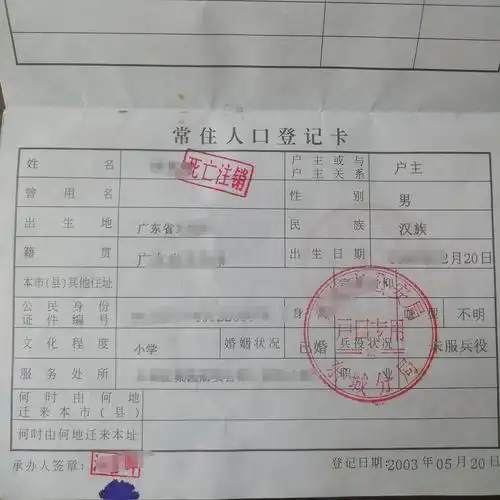 常住人口登记卡
姓名 死亡注销 户主或与户主关系 户主
曾用名 性别 男
出生地 广东省 民族 汉族
籍贯 广 出生日期 2月20日
本市(县)其他住址
公民身份证件编号 身 不明
文化程度 小学 婚姻状况 已婚 兵役状况 未服兵役
服务处所 职业
户口专用
城分局
何时由何地迁来本市(县)
何时由何地迁来本址
承办人签章: 登记日期:2003年05月20日